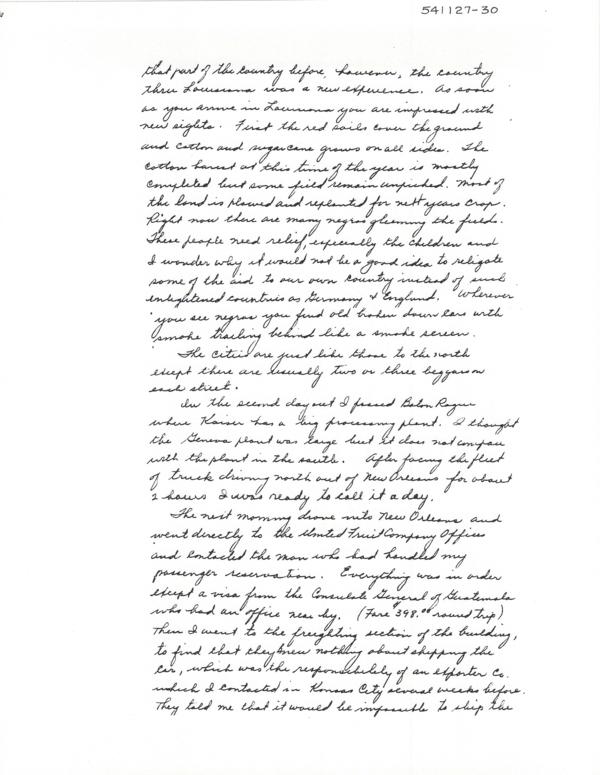 541127-30
that part of the country before, however, the country
thru Louisiana was a new experience. As soon
as you arrive in Louisiana you are impressed with
new sights. First the red soils cover the ground
and cotton and sugar cane grows on all sides. The
cotton harest at this time of the year is mostly
completed but some field remain unpicked. Most of
the land is plowed and replanted for next years crop.
Right now there are many negros gleening the fields.
These people need relief, especially the children and
I wonder why it would not be a good idea to religate
some of the aid to our own country instead of such
enlightened countries as Germany & England. Wherever
you see negros you find old broken down cars with
smoke trailing behind like a smoke screen.
The cities are just like those to the north
except there are usually two or three beggars on
each street.
In the second day out I passed Baton Rogue
where Kaiser has a big processing plant. I thought
the Geneva plant was large but it does not compare
with the plant in the south. After facing the fleet
of truck driving north out of New Orleans for about
2 hours I was ready to call it a day.
The next morning drove into New Orleans and
went directly to the United Fruit Company Offices
and contacted the man who had handled my
passenger reservation. Everything was in order
except a visa from the Consulate General of Guatemala
who had an office near by. (Fare $398.00 round trip)
Then I went to the freighting section of the building,
to find that they knew nothing about shipping the
car, which was the responsibility of an exporter Co.
which I contacted in Kansas City several weeks before.
They told me that it would be impossible to ship the